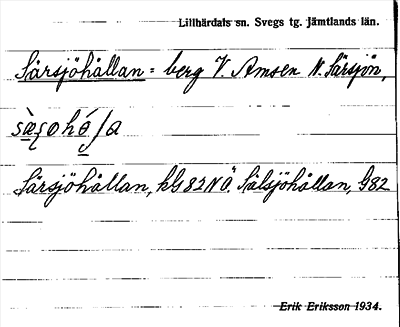 Lillhärdals sn. Svegs tg. Jämtlands län.
Särsjöhållan = berg V. Amsen N. Särsjön,
Särsjöhållan, kG82NÖ. Sälsjöhållan, G82
Erik Eriksson 1934.